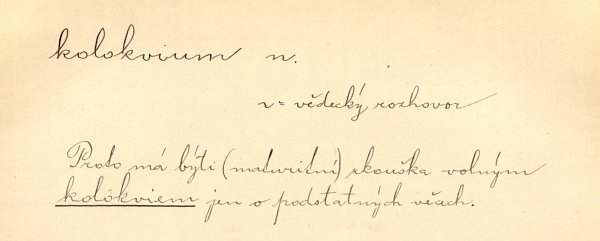 kolokvium n.
v = vědecký rozhovor
Proto má býti (maturitní) zkouška volným
kolókviem jen o podstatných věcech.